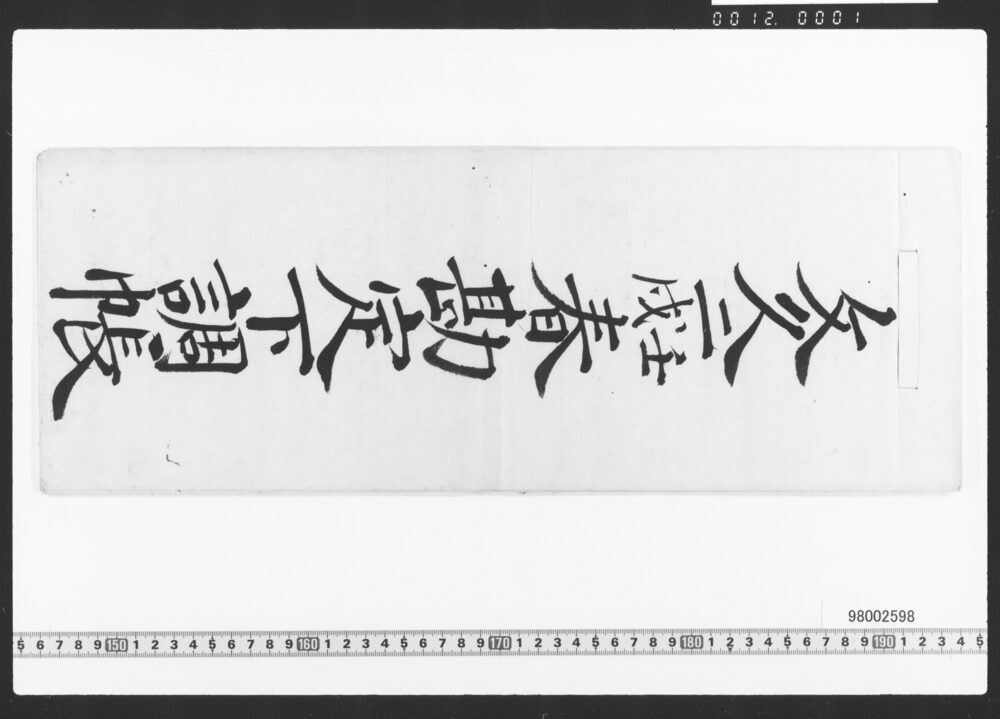 0012. 0001
文久二壬戌春勘定下調帳
98002598
5 6 7 8 9 150 1 2 3 4 5 6 7 8 9 160 1 2 3 4 5 6 7 8 9 170 1 2 3 4 5 6 7 8 9 180 1 2 3 4 5 6 7 8 9 190 1 2 3 4 5